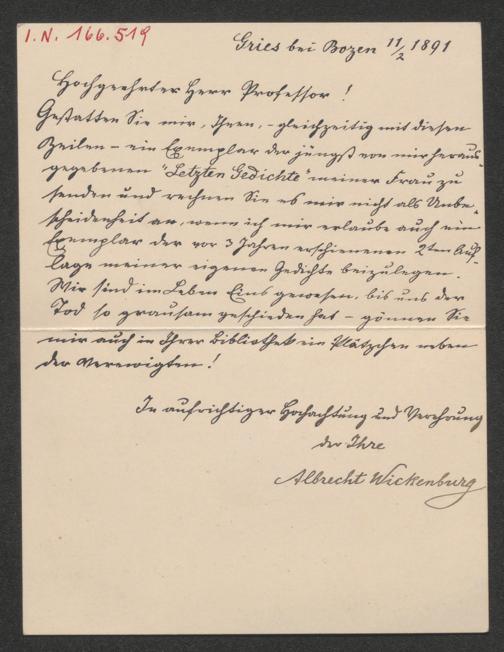 I.N. 166.519
Gries bei Bozen 11/2 1891
Hochgeehrter Herr Professor!
Gestatten Sie mir, Ihnen, – gleichzeitig mit diesen
Zeilen – ein Exemplar der jüngst von mir heraus-
gegebenen "Letzten Gedichte" meiner Frau zu
senden und rechnen Sie es mir nicht als Unbe-
scheidenheit an, wenn ich mir erlaube auch ein
Exemplar der vor 3 Jahren erschienenen 2ten Auf-
lage meiner eigenen Gedichte beizulegen.
Wir sind im Leben Eins gewesen, bis uns der
Tod so grausam geschieden hat – gönnen Sie
mir auch in Ihrer Bibliothek ein Plätzchen neben
der Verewigten!
In aufrichtiger Hochachtung und Verehrung
der Ihre
Albrecht Wickenburg